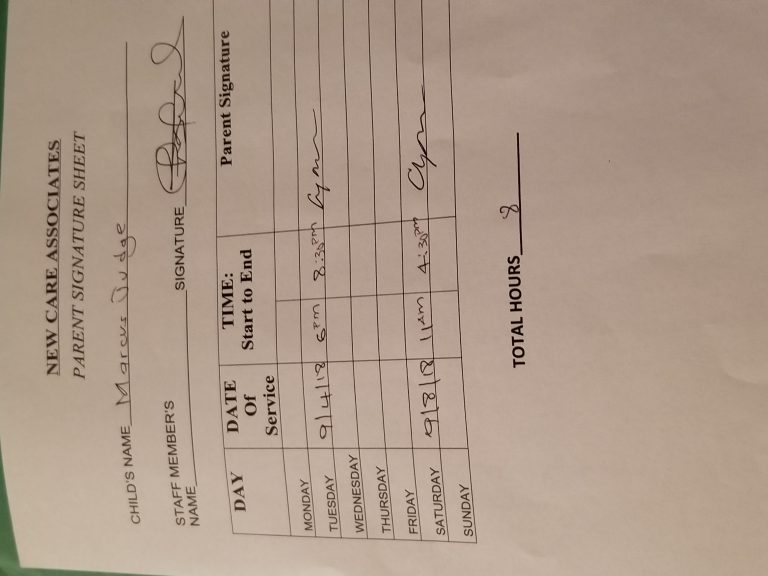 NEW CARE ASSOCIATES
PARENT SIGNATURE SHEET
CHILD'S NAME Marcus Judge
STAFF MEMBER'S
NAME SIGNATURE
DAY DATE Of Service TIME: Start to End Parent Signature
MONDAY
TUESDAY 9/4/18 6pm 8:30pm
WEDNESDAY
THURSDAY
FRIDAY
SATURDAY 9/8/18 11am 4:30pm
SUNDAY
TOTAL HOURS 8